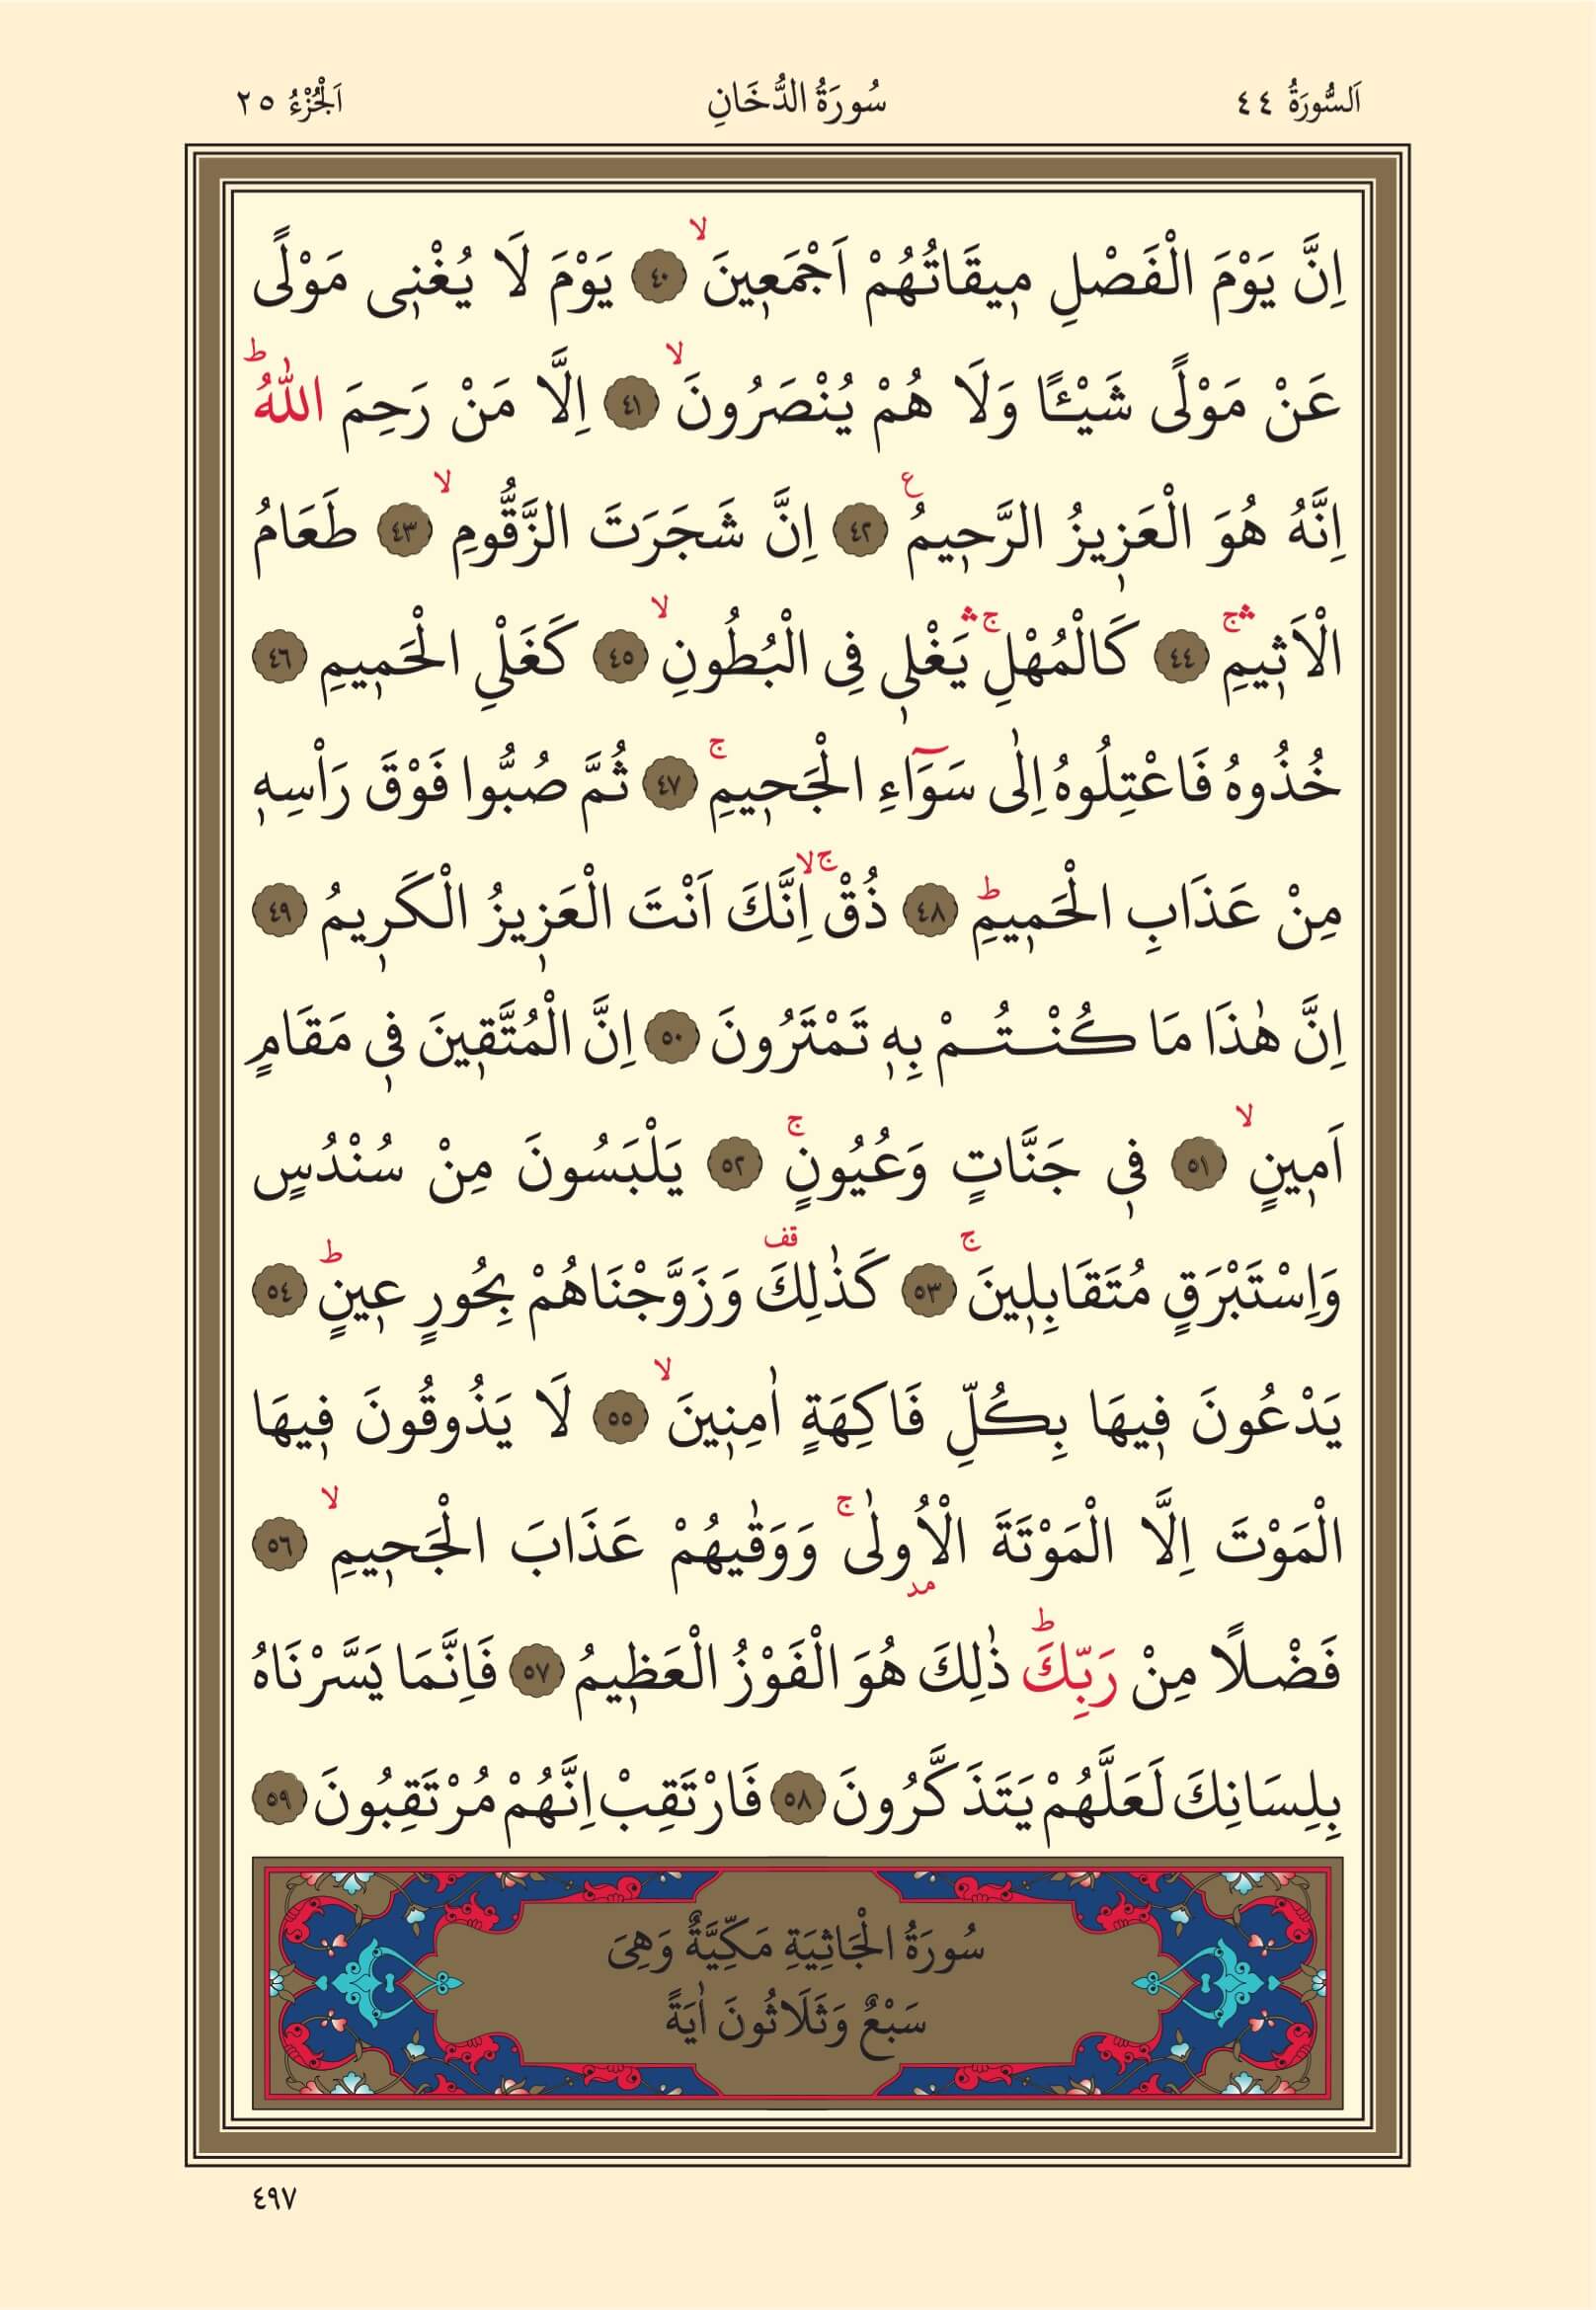 اَلسُّورَةُ ٤٤ سُورَةُ الدُّخَانِ اَلْجُزْءُ ٢٥
اِنَّ يَوْمَ الْفَصْلِ م۪يقَاتُهُمْ اَجْمَع۪ينَۙ ﴿٤٠﴾ يَوْمَ لَا يُغْن۪ى مَوْلًى
عَنْ مَوْلًى شَيْـًٔا وَلَا هُمْ يُنْصَرُونَۙ ﴿٤١﴾ اِلَّا مَنْ رَحِمَ اللّٰهُۜ
اِنَّهُ هُوَ الْعَز۪يزُ الرَّح۪يمُ ع ﴿٤٢﴾ اِنَّ شَجَرَتَ الزَّقُّومِۙ ﴿٤٣﴾ طَعَامُ
الْاَث۪يمِۚۛ ﴿٤٤﴾ كَالْمُهْلِۚۛ يَغْل۪ى فِى الْبُطُونِۙ ﴿٤٥﴾ كَغَلْىِ الْحَم۪يمِ ﴿٤٦﴾
خُذُوهُ فَاعْتِلُوهُ اِلٰى سَوَٓاءِ الْجَح۪يمِۚ ﴿٤٧﴾ ثُمَّ صُبُّوا فَوْقَ رَاْسِه۪
مِنْ عَذَابِ الْحَم۪يمِۜ ﴿٤٨﴾ ذُقْۚۙ اِنَّكَ اَنْتَ الْعَز۪يزُ الْكَر۪يمُ ﴿٤٩﴾
اِنَّ هٰذَا مَا كُنْتُمْ بِه۪ تَمْتَرُونَ ﴿٥٠﴾ اِنَّ الْمُتَّق۪ينَ ف۪ى مَقَامٍ
اَم۪ينٍۙ ﴿٥١﴾ ف۪ى جَنَّاتٍ وَعُيُونٍۚ ﴿٥٢﴾ يَلْبَسُونَ مِنْ سُنْدُسٍ
وَاِسْتَبْرَقٍ مُتَقَابِل۪ينَۚ ﴿٥٣﴾ كَذٰلِكَ قف وَزَوَّجْنَاهُمْ بِحُورٍ ع۪ينٍۜ ﴿٥٤﴾
يَدْعُونَ ف۪يهَا بِكُلِّ فَاكِهَةٍ اٰمِن۪ينَۙ ﴿٥٥﴾ لَا يَذُوقُونَ ف۪يهَا
الْمَوْتَ اِلَّا الْمَوْتَةَ الْاُولٰىۚ مد وَوَقٰيهُمْ عَذَابَ الْجَح۪يمِۙ ﴿٥٦﴾
فَضْلًا مِنْ رَبِّكَۜ ذٰلِكَ هُوَ الْفَوْزُ الْعَظ۪يمُ ﴿٥٧﴾ فَاِنَّمَا يَسَّرْنَاهُ
بِلِسَانِكَ لَعَلَّهُمْ يَتَذَكَّرُونَ ﴿٥٨﴾ فَارْتَقِبْ اِنَّهُمْ مُرْتَقِبُونَ ﴿٥٩﴾
سُورَةُ الْجَاثِيَةِ مَكِّيَّةٌ وَهِىَ
سَبْعٌ وَثَلَاثُونَ اٰيَةً
٤٩٧